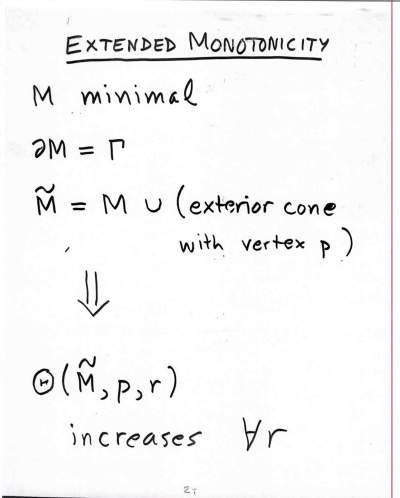 EXTENDED MONOTONICITY
M minimal
∂M = Γ
M̃ = M ∪ (exterior cone
with vertex p)
⇓
Θ(M̃, p, r)
increases ∀r